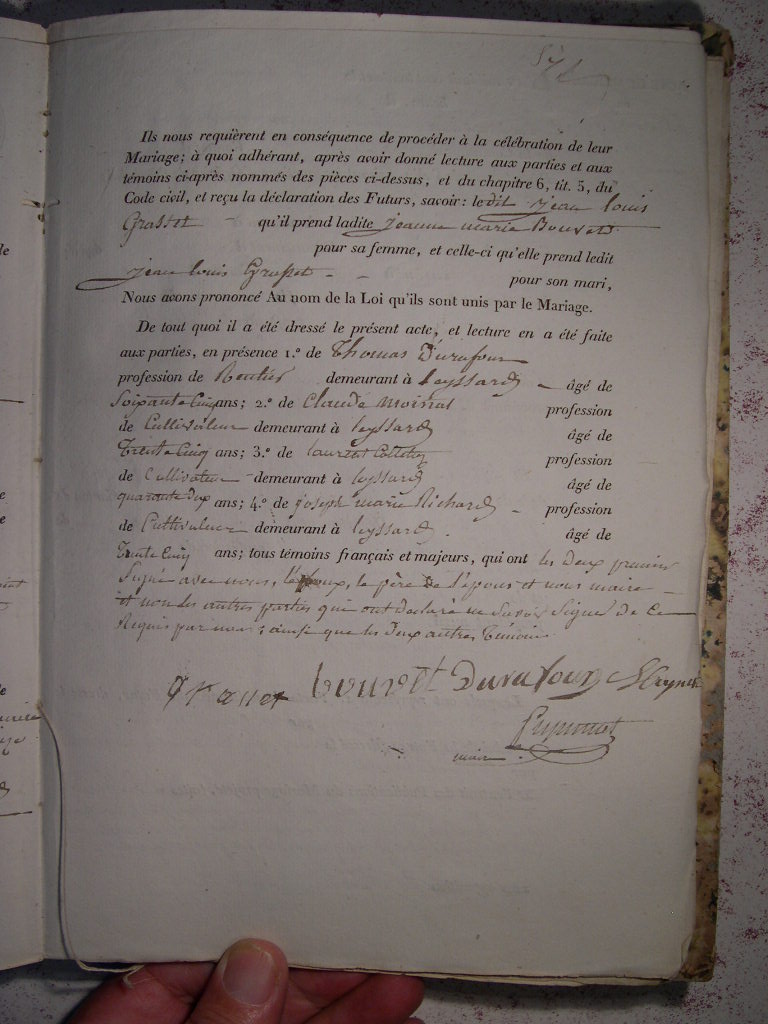 Ils nous requièrent en conséquence de procéder à la célébration de leur
Mariage; à quoi adhérant, après avoir donné lecture aux parties et aux
témoins ci-après nommés des pièces ci-dessus, et du chapitre 6, tit. 5, du
Code civil, et reçu la déclaration des Futurs, savoir: ledit jean louis
Grasset qu'il prend ladite jeanne marie Bouvet
pour sa femme, et celle-ci qu'elle prend ledit
jean louis Grasset pour son mari,
Nous avons prononcé Au nom de la Loi qu'ils sont unis par le Mariage.
De tout quoi il a été dressé le présent acte, et lecture en a été faite
aux parties, en présence 1.º de Thomas Durafour
profession de Rentier demeurant à Leyssard âgé de
Soixante Cinq ans; 2.º de Claude profession
de Cultivateur demeurant à leyssard âgé de
Trente Cinq ans; 3.º de laurent profession
de Cultivateur demeurant à leyssard âgé de
quarante deux ans; 4.º de joseph marie Richard profession
de Cultivateur demeurant à leyssard âgé de
Trente Cinq ans; tous témoins français et majeurs, qui ont les deux premiers
Signé avec nous, l'époux, le père de l'épouse et nous maire
et non les autres parties qui ont declaré ne Savoir Signer de ce
Requis par nous; ainsi que les deux autres témoins
Grasset bouvet Durafour
maire